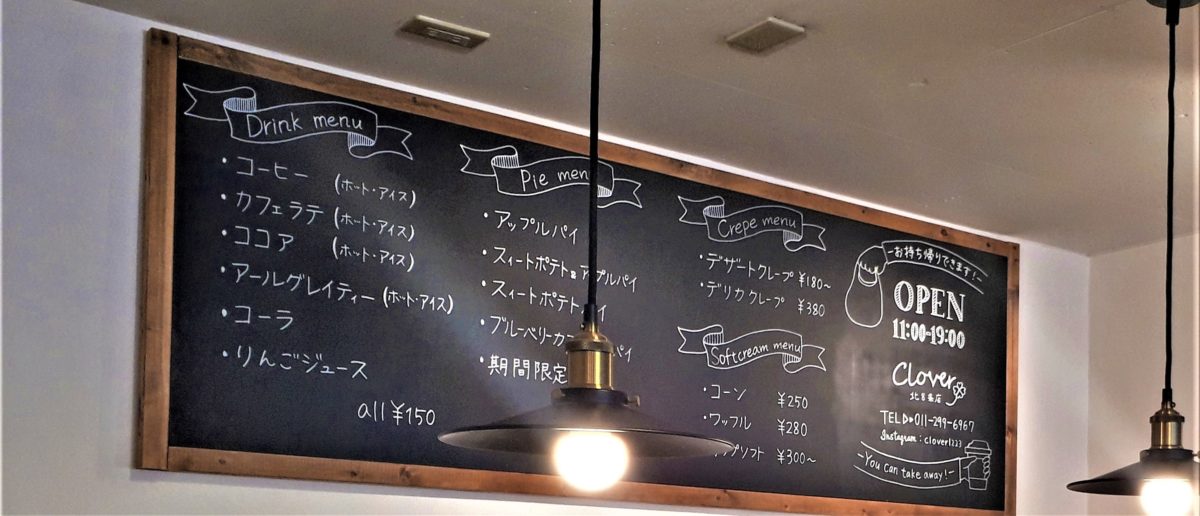 Drink menu
・コーヒー (ホート・アイス)
・カフェラテ (ホート・アイス)
・ココア (ホット・アイス)
・アールグレイティー (ホット・アイス)
・コーラ
・りんごジュース
all ¥150
Pie menu
・アップルパイ
・スィートポテト&アップルパイ
・スィートポテト
・ブルーベリーカ
・期間限定
Crepe menu
・デザートクレープ ¥180~
・デリカクレープ ¥380
Softcream menu
・コーン ¥250
・ワッフル ¥280
¥300~
-お持ち帰りできます!-
OPEN
11:00-19:00
Clover
TEL▷011-299-6967
Instagram:clover1223
-You can take away!-